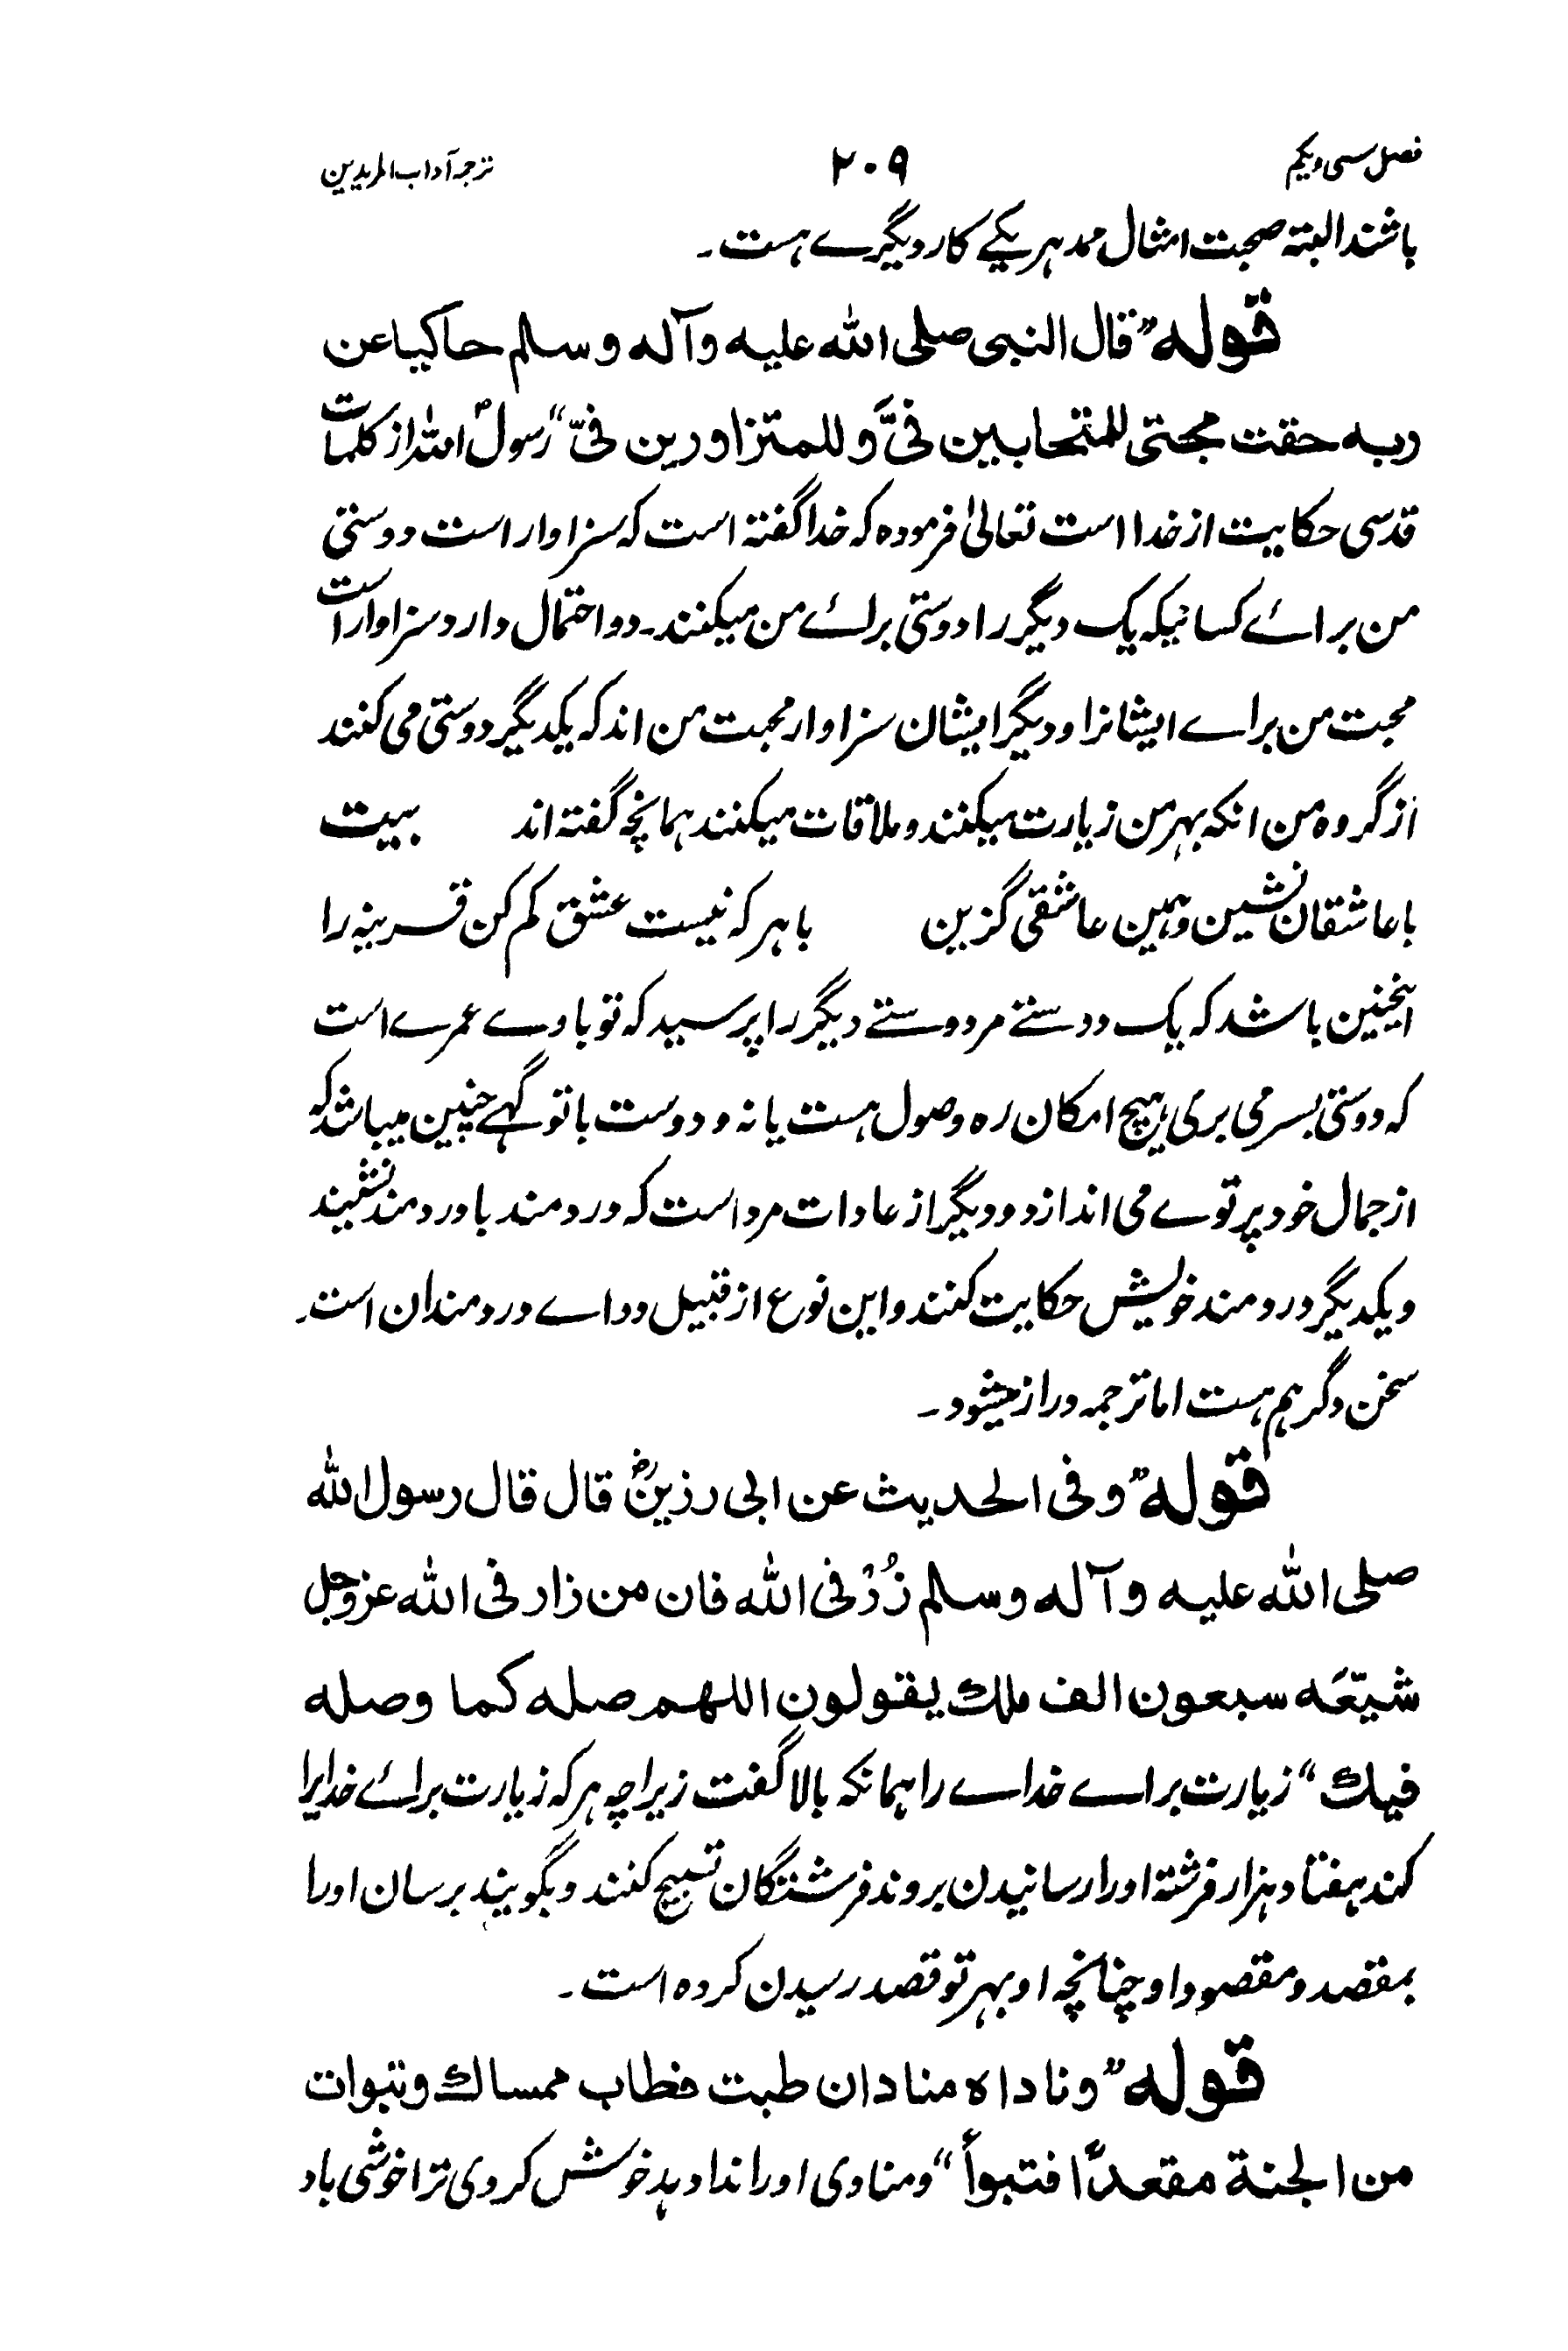 فصل سی ویکم ۲۰۹ ترجمہ آداب المریدین
باشند البتہ صحبت امثال ممد ہر یکے کار دیگرے ہست۔
قولہ” قال النبی صلی اللہ علیہ وآلہ وسلم حاکیا عن
ربہ حقت محبتی للمتحابین فیَّ وللمتزاورین فیّ“ رسولؐ اللہ از کلمات
قدسی حکایت از خدا است تعالیٰ فرمودہ کہ خدا گفتہ است کہ سزاوار است دوستی
من برائے کسانیکہ یک دیگر را دوستی برائے من میکنند۔ دو احتمال دارد سزاوار است
محبت من براے ایشانرا و دیگر ایشان سزاوار محبت من اند کہ یکدیگر دوستی می کنند
از گروہ من انکہ بہر من زیارت میکنند و ملاقات میکنند ہمانچہ گفتہ اند بیت
با عاشقان نشین و ہمین عاشقی گزین با ہر کہ نیست عشق کم کن قرینہ را
اینچنین باشد کہ یک دوستے مر دوستے دیگر را پرسید کہ تو باوے عمرے است
کہ دوستی بسر می بری ہیچ امکان رہ وصول ہست یا نہ و دوست با تو گہے چنین میباشد کہ
از جمال خود پرتوے می اندازد و دیگر از عادات مرد است کہ دردمند با دردمند نشیند
و یکدیگر دردمند خویش حکایت کنند و این نوع از قبیل دواے دردمندان است۔
سخن دگر ہم ہست اما ترجمہ دراز میشود۔
قولہ” وفی الحدیث عن ابی رزینؓ قال قال رسول اللہ
صلی اللہ علیہ وآلہ وسلم زُرْ فی اللہ فان من زار فی اللہ عزوجل
شیّعَہ سبعون الف ملك یقولون اللھم صلہ کما وصلہ
فیك“ زیارت براے خداے را ہمانکہ بالا گفت زیراچہ ہر کہ زیارت برائے خدایرا
کند ہفتاد ہزار فرشتہ اورا رسانیدن بروند فرشتگان تسبیح کنند و بگویند برسان اورا
بمقصد و مقصود او چنانچہ او بہر تو قصد رسیدن کردہ است۔
قولہ” وناداہ منادان طبت فطاب ممساك وتبوات
من الجنة مقعدًا فتبوأ“ و منادی اورا ندا دہد خوش کردی ترا خوشی باد